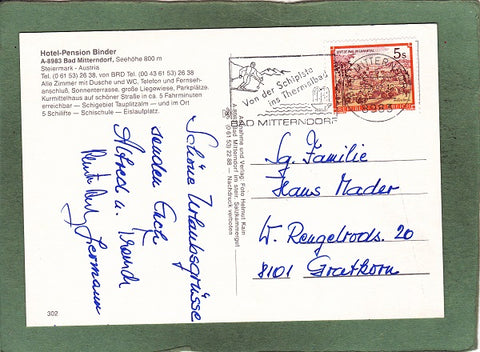 Hotel-Pension Binder
A-8983 Bad Mitterndorf, Seehöhe 800 m
Steiermark - Austria
Tel. (0 61 53) 26 38, von BRD Tel. (00 43 61 53) 26 38
Alle Zimmer mit Dusche und WC, Telefon und Fernseh-
anschluß, Sonnenterrasse, große Liegewiese, Parkplätze.
Kurmittelhaus auf schöner Straße in ca. 5 Fahrminuten
erreichbar — Schigebiet Tauplitzalm — und im Ort
5 Schilifte — Schischule — Eislaufplatz.
Von der Schipiste
ins Thermalbad
BAD MITTERNDORF
8983
5s
Aufnahme und Verlag: Foto Helmut Kain
A-8983 Bad Mitterndorf im steir. Salzkammergut
(0 61 53) 22 88 — Nachdruck verboten
Schöne Urlaubsgrüsse
senden Euch
Alfred u.
Hermann
Sg. Familie
Hans Mader
W. Rengelrods. 20
8101 Gratkorn
302